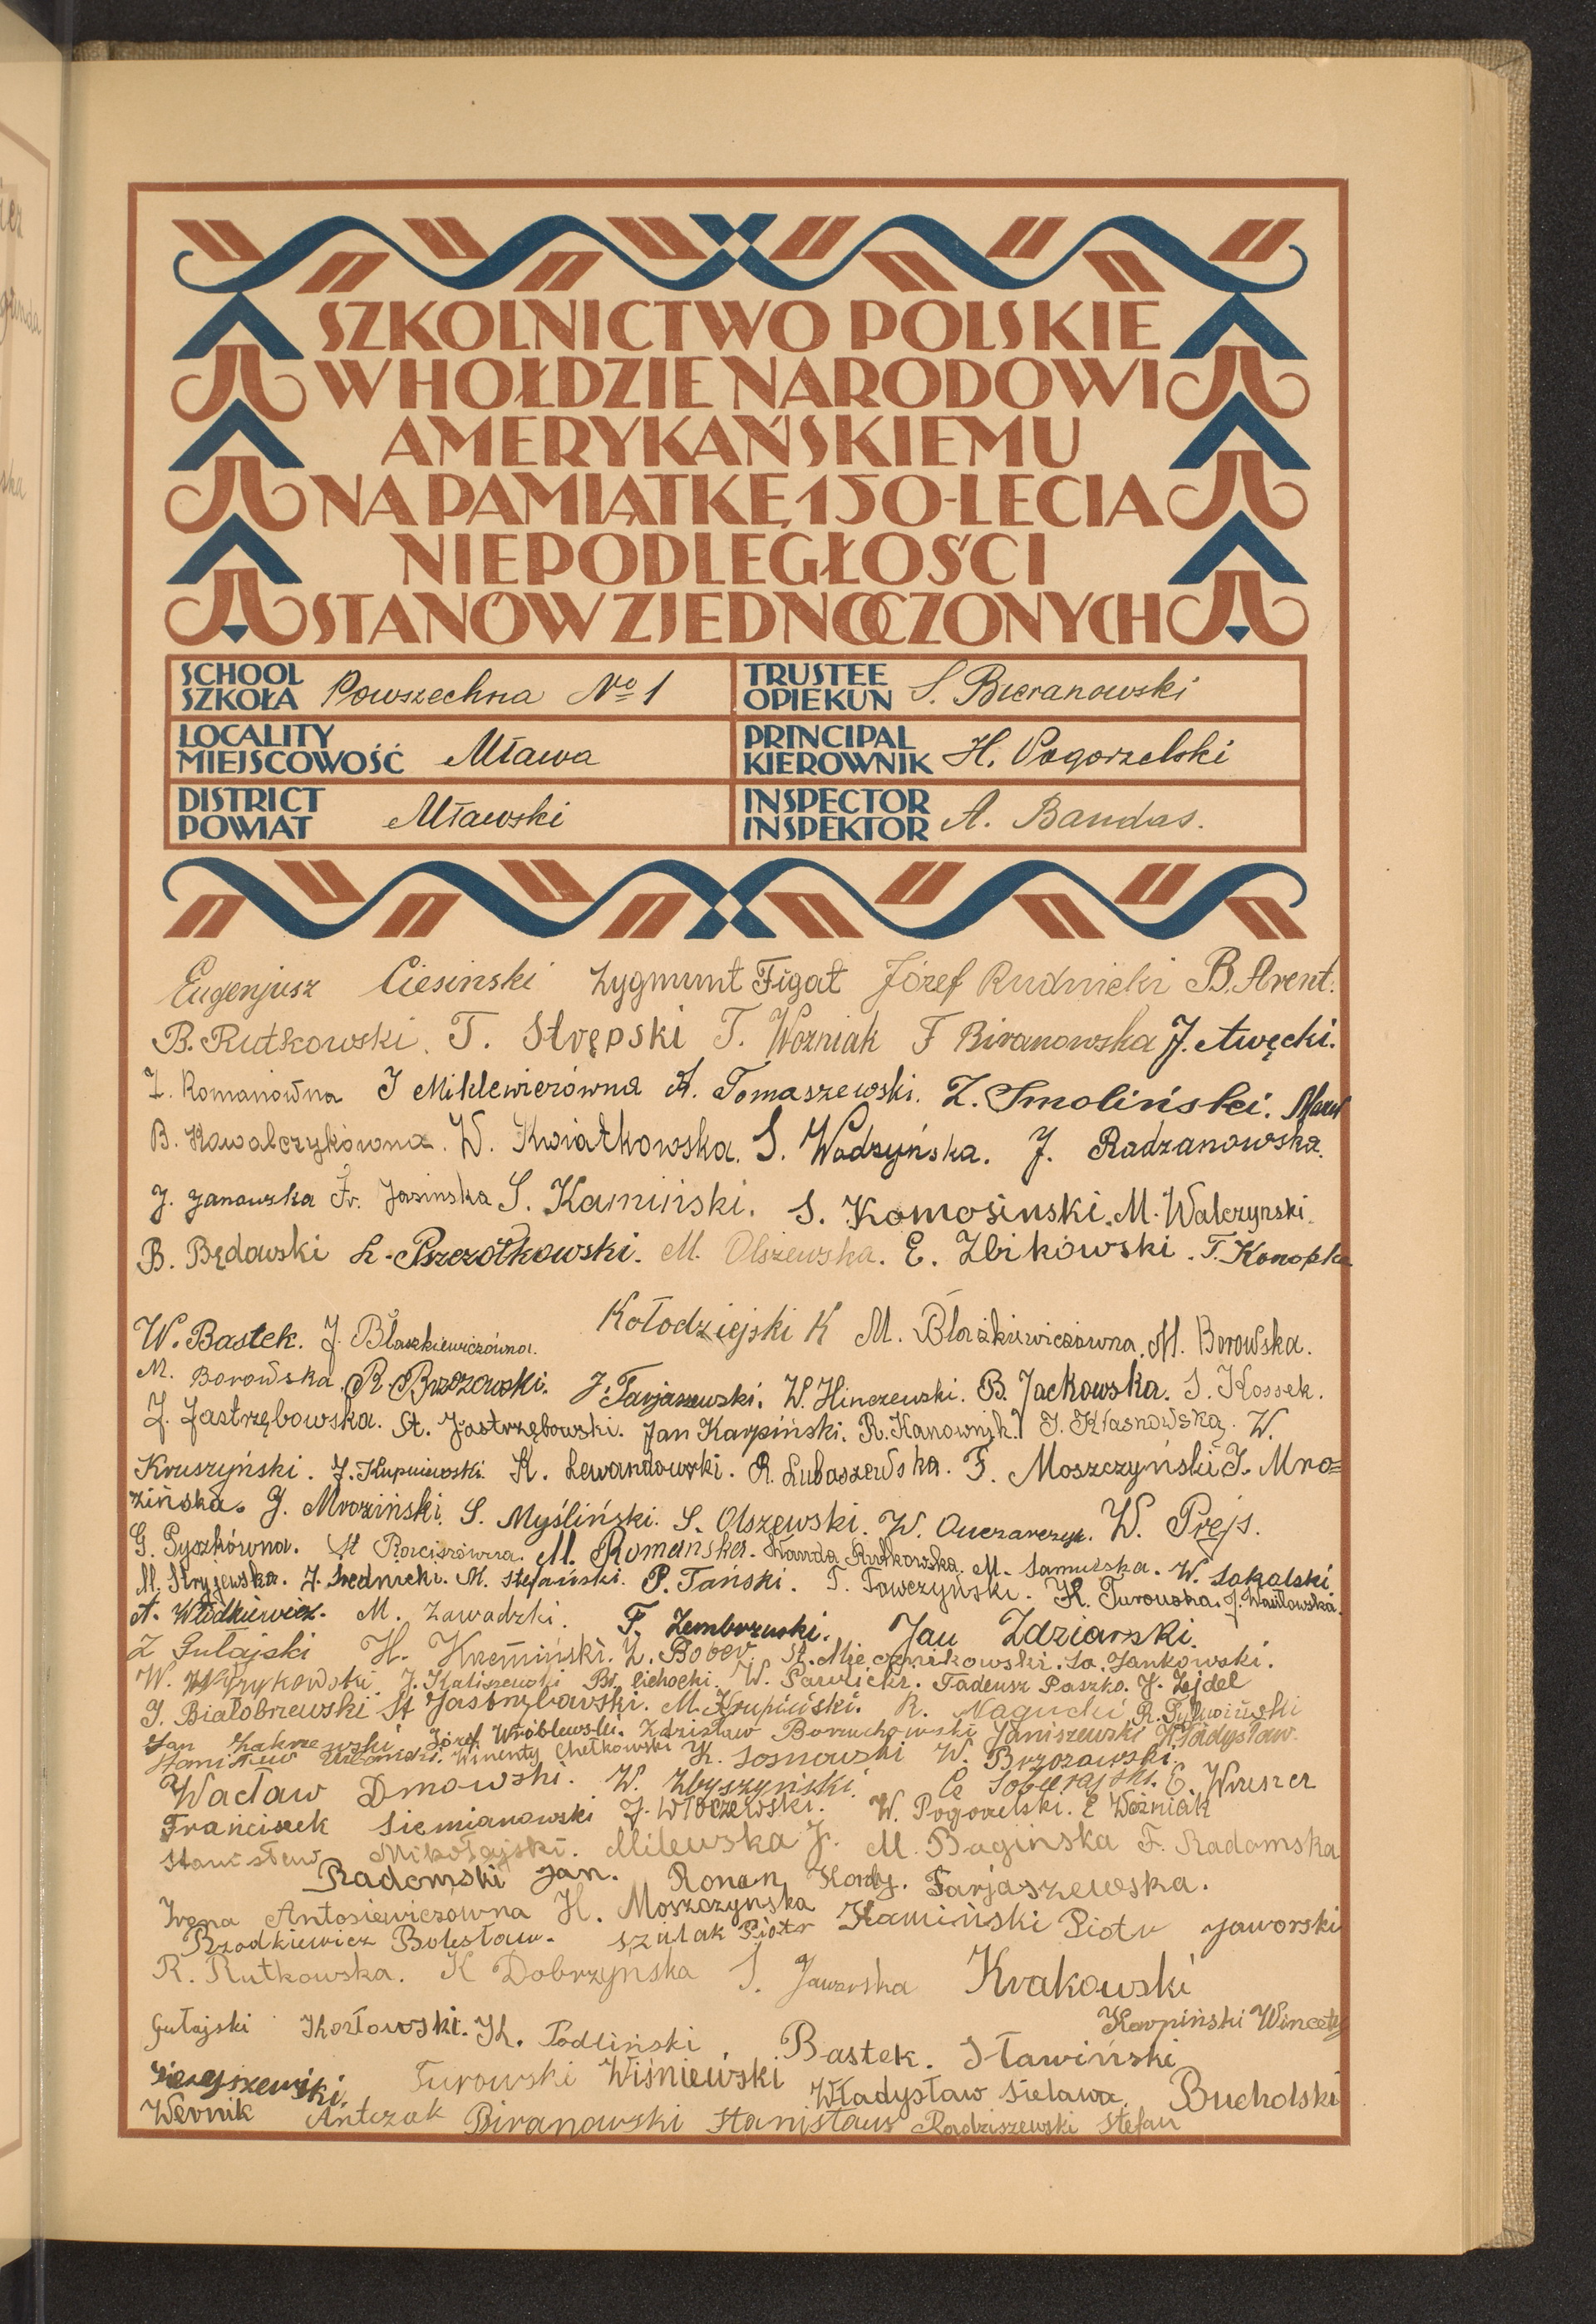 SZKOLNICTWO POLSKIE
W HOŁDZIE NARODOWI
AMERYKAŃSKIEMU
NA PAMIĄTKĘ 150-LECIA
NIEPODLEGŁOŚCI
STANÓW ZJEDNOCZONYCH
SCHOOL
SZKOŁA Powszechna No 1
TRUSTEE
OPIEKUN S. Bieranowski
LOCALITY
MIEJSCOWOŚĆ Mława
PRINCIPAL
KIEROWNIK H. Pogorzelski
DISTRICT
POWIAT Mławski
INSPECTOR
INSPEKTOR A. Bandas.
Eugenjusz Ciesinski Zygmunt Figat Józef Rudnicki B. Arent.
B. Rutkowski. T. Strępski T. Woźniak F Biranowska J. Awęcki.
Z. Romanówna J Miklewierówna A. Tomaszewski. Z. Smoliński.
B. Kowalczykówna. W. Kwiatkowska. S. Wodzyńska. J. Radzanowska.
J. Janowska Fr. Jasinska S. Kamiński. S. Komosinski. M. Walczynski.
B. Będowski L. Pszczółkowski. M. Olszewska. E. Zbikowski. T. Konopka
W. Bastek. J. Błaszkiewiczówna. Kołodziejski K M. Błażkiewiczówna. M. Borowska.
M. Borowska. R. Brzozowski. J. Farjaszewski. W. Hinczewski. B. Jackowska. S. Kossek.
J. Jastrzębowska. St. Jastrzębowski. Jan Karpiński. R. Kanownik. J. Kłasnowska. W.
Kruszyński. J. Kupniewski. K. Lewandowski. R. Lubaszewska. F. Moszczyński J. Mro=
zińska. J. Mroziński. S. Myśliński. S. Olszewski. W. Owczarczyk. W. Prejs.
G. Pyszkówna. St Raciszówna. M. Romanska. Wanda Rutkowska. M. Samulska. W. Sakalski.
M. Stryjewska. J. Średnicki. M. Stefański. P. Tański. T. Towczyński. H. Turowska. J. Wasilowska.
A. Włodkiewicz. M. Zawadzki. F. Zembrzuski. Jan Zdziarski.
Z Gutajski H. Krzemiński. Z. Bober. St. Miecznikowski. Sa. Jankowski.
W. Wyrzykowski. J. Kaliszewski Br. Cichocki. W. Pawlicki. Tadeusz Paszko. J. Zejdel
J. Białobrzewski St Jastrzębowski. M. Krupiński. R. Nagucki
Jan Zakrzewski Józef Wróblewski. Zdzisław Borzuchowski Janiszewski Władysław.
Stanisław Winenty Chełkowski K. Sosnowski W. Brzozowski.
Wacław Dmowski. W. Zbyszyński. C Sobierajski. E. Wruszer
Franciszek Siemianowski J. Wtoczewski. W. Pogorzelski. E Woźniak
Stanisław Mikołajski. Milewska J. M. Baginska F. Radomska
Radomski Jan. Roman Kordy. Farjaszewska.
Irena Antosiewiczowna H. Moszczynska Kamiński Piotr Jaworski
Rzodkiewicz Bolesław. Szulak Piotr
R. Rutkowska. K Dobrzyńska S. Jaworska Krakowski
Gutajski Kozłowski. K. Podliński. Bastek. Sławiński Karpiński Wincenty
Turowski Wiśniewski Władysław Sielawa. Bucholski
Wernik Antczak Biranowski Stanisław Radziszewski Stefan